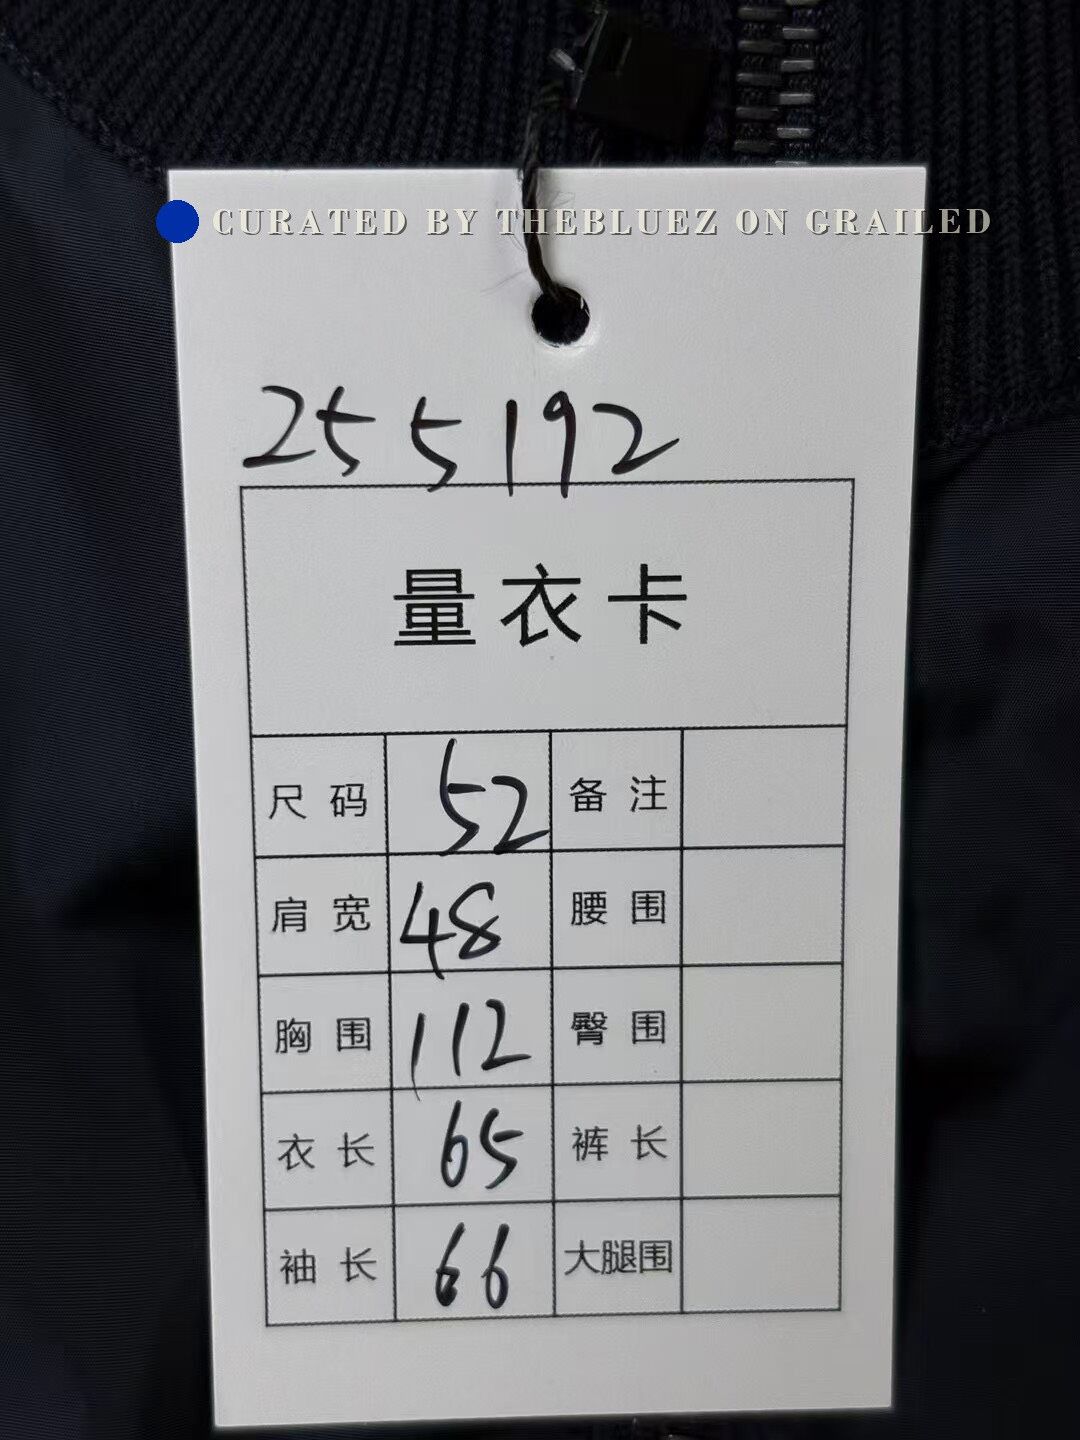 CURATED BY THEBLUEZ ON GRAILED
255192
量衣卡
尺码 52 备注
肩宽 48 腰围
胸围 112 臀围
衣长 65 裤长
袖长 66 大腿围